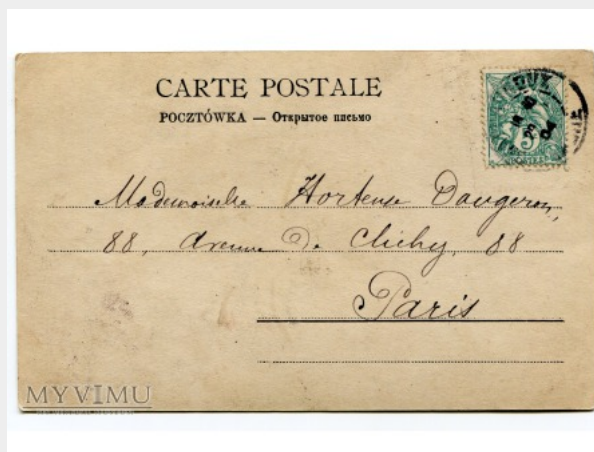 CARTE POSTALE
POCZTÓWKA — Открытое письмо
5
Mademoiselle Hortense Daugeron,
88, Avenue de Clichy, 88
Paris
MYVIMU